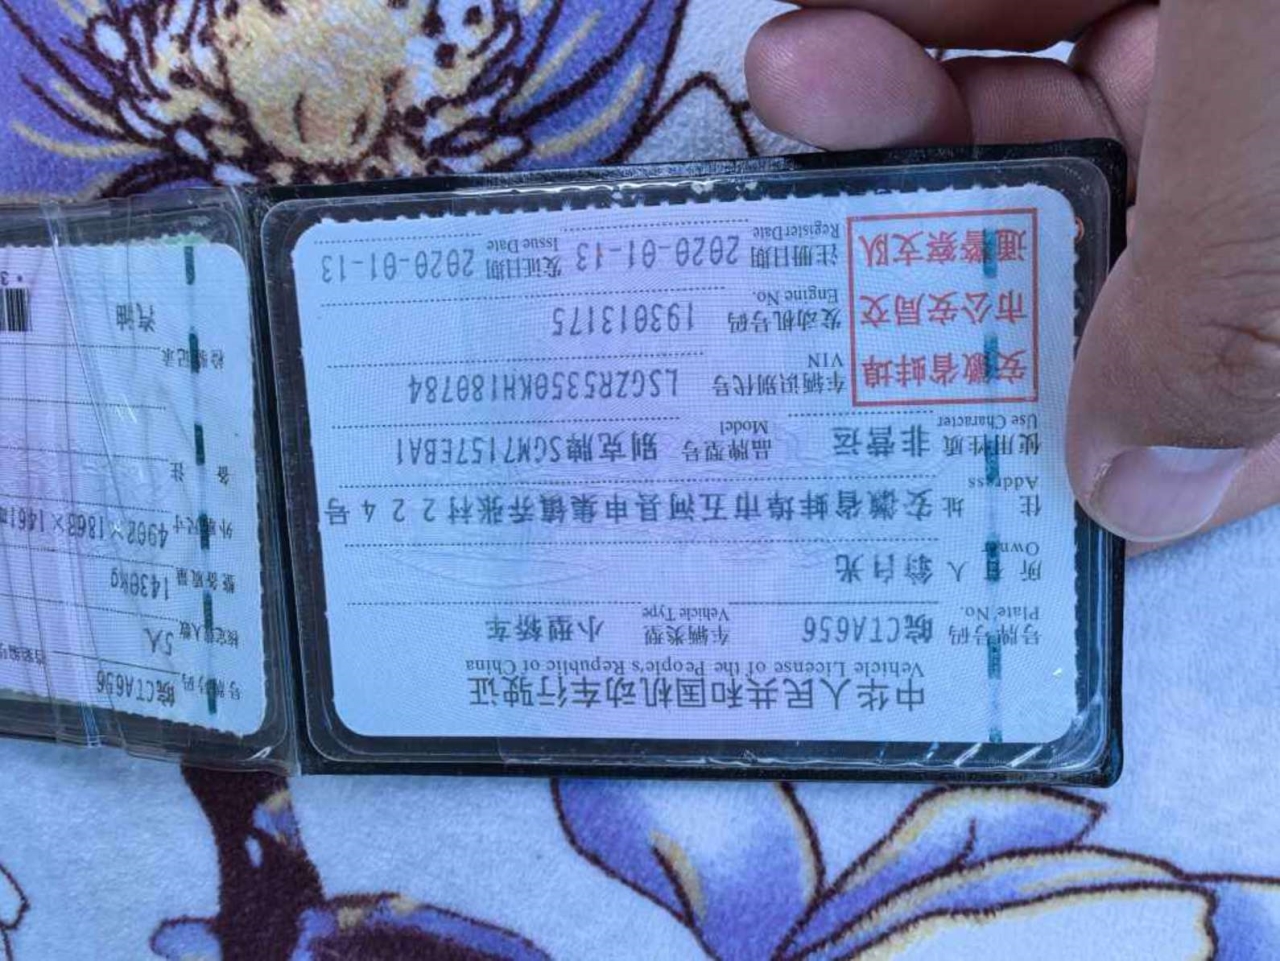 中华人民共和国机动车行驶证
Vehicle License of the People's Republic of China
号牌号码 皖CTA656 车辆类型 小型轿车
Plate No. Vehicle Type
所有人 翁自光
Owner
住址 安徽省蚌埠市五河县申集镇乔张村224号
Address
使用性质 非营运 品牌型号 别克牌SGM7157EBA1
Use Character Model
安徽省蚌埠
市公安局交
通警察支队
车辆识别代号 LSGZR5350KH180784
VIN
发动机号码 193013175
Engine No.
注册日期 2020-01-13 发证日期 2020-01-13
Register Date Issue Date
号牌号码 皖CTA656
核定载人数 5人
整备质量 1430kg
外廓尺寸 4902×1863×1461
备注
检验记录
汽油